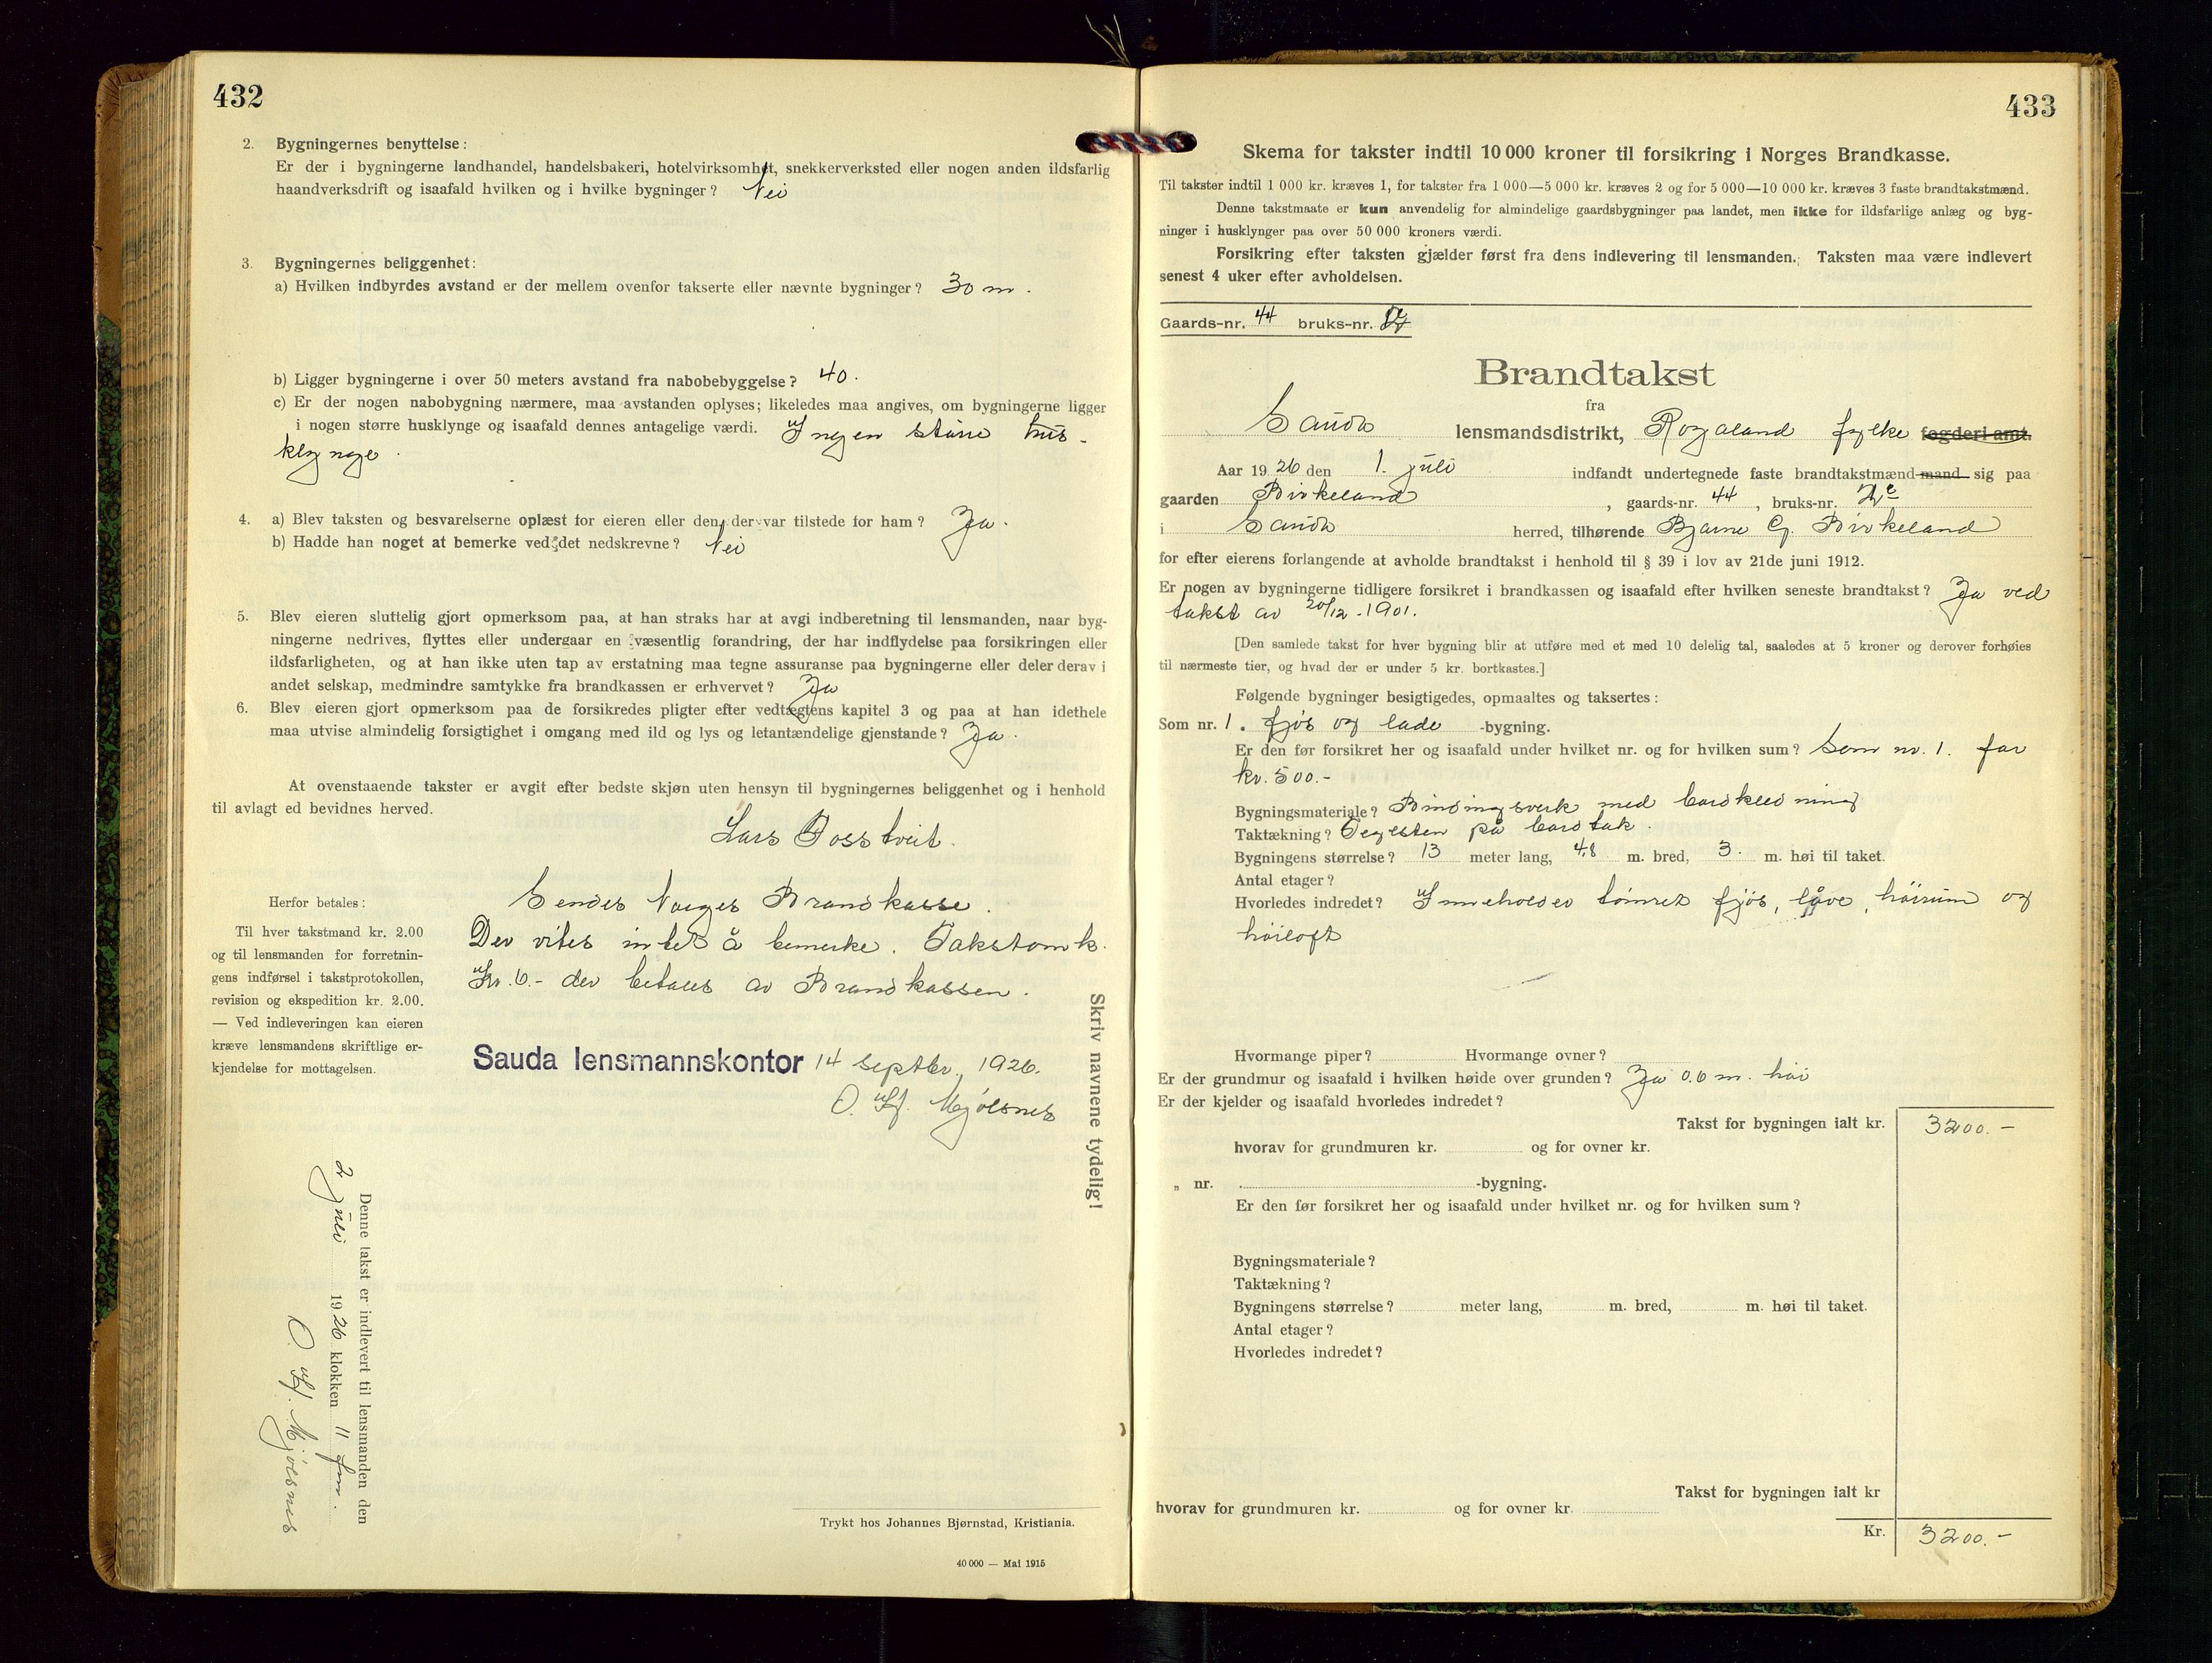 432
2. Bygningernes benyttelse:
Er der i bygningerne landhandel, handelsbakeri, hotelvirksomhet, snekkerverksted eller nogen anden ildsfarlig
haandverksdrift og isaafald hvilken og i hvilke bygninger? Nei
3. Bygningernes beliggenhet:
a) Hvilken indbyrdes avstand er der mellem ovenfor takserte eller nævnte bygninger? 30 m.
b) Ligger bygningerne i over 50 meters avstand fra nabobebyggelse? 40.
c) Er der nogen nabobygning nærmere, maa avstanden oplyses; likeledes maa angives, om bygningerne ligger
i nogen større husklynge og isaafald dennes antagelige værdi. Ingen større hus-
klynge.
4. a) Blev taksten og besvarelserne oplæst for eieren eller den, der var tilstede for ham? Ja.
b) Hadde han noget at bemerke ved det nedskrevne? Nei
5. Blev eieren sluttelig gjort opmerksom paa, at han straks har at avgi indberetning til lensmanden, naar byg-
ningerne nedrives, flyttes eller undergaar en væsentlig forandring, der har indflydelse paa forsikringen eller
ildsfarligheten, og at han ikke uten tap av erstatning maa tegne assuranse paa bygningerne eller deler derav i
andet selskap, medmindre samtykke fra brandkassen er erhvervet? Ja
6. Blev eieren gjort opmerksom paa de forsikredes pligter efter vedtægtens kapitel 3 og paa at han idethele
maa utvise almindelig forsigtighet i omgang med ild og lys og letantændelige gjenstande? Ja.
At ovenstaaende takster er avgit efter bedste skjøn uten hensyn til bygningernes beliggenhet og i henhold
til avlagt ed bevidnes herved.
Lars Fosstveit.
Herfor betales:
Til hver takstmand kr. 2.00
og til lensmanden for forretnin-
gens indførsel i takstprotokollen,
revision og ekspedition kr. 2.00.
— Ved indleveringen kan eieren
kræve lensmandens skriftlige er-
kjendelse for mottagelsen.
Sendes Norges Brandkasse.
Der vites intet å bemerke. Takstomk.
Kr. 6.- der betales av Brandkassen.
Sauda lensmannskontor 14 septbr. 1926.
O. H. Mjölsnes
Skriv navnene tydelig!
Denne takst er indlevert til lensmanden den
2 juli 1926 klokken 11 fm.
O. H. Mjölsnes
Trykt hos Johannes Bjørnstad, Kristiania.
40 000 — Mai 1915
433
Skema for takster indtil 10 000 kroner til forsikring i Norges Brandkasse.
Til takster indtil 1 000 kr. kræves 1, for takster fra 1 000—5 000 kr. kræves 2 og for 5 000—10 000 kr. kræves 3 faste brandtakstmænd.
Denne takstmaate er kun anvendelig for almindelige gaardsbygninger paa landet, men ikke for ildsfarlige anlæg og byg-
ninger i husklynger paa over 50 000 kroners værdi.
Forsikring efter taksten gjælder først fra dens indlevering til lensmanden. Taksten maa være indlevert
senest 4 uker efter avholdelsen.
Gaards-nr. 44 bruks-nr.
Brandtakst
fra
Sauda lensmandsdistrikt, Rogaland fylke fogderi amt.
Aar 1926 den 1. juli indfandt undertegnede faste brandtakstmænd-mand sig paa
gaarden Birkeland, gaards-nr. 44, bruks-nr.
i Sauda herred, tilhørende Bjarne G. Birkeland
for efter eierens forlangende at avholde brandtakst i henhold til § 39 i lov av 21de juni 1912.
Er nogen av bygningerne tidligere forsikret i brandkassen og isaafald efter hvilken seneste brandtakst? Ja ved
takst av 20/12-1901.
[Den samlede takst for hver bygning blir at utføre med et med 10 delelig tal, saaledes at 5 kroner og derover forhøies
til nærmeste tier, og hvad der er under 5 kr. bortkastes.]
Følgende bygninger besigtigedes, opmaaltes og taksertes:
Som nr. 1. fjös og lade -bygning.
Er den før forsikret her og isaafald under hvilket nr. og for hvilken sum? Som nr. 1. for
kr. 500.-
Bygningsmateriale? Bindingsverk med bordkledning
Taktækning? Teglsten på bordtak.
Bygningens størrelse? 13 meter lang, 4,8 m. bred, 3. m. høi til taket.
Antal etager?
Hvorledes indredet? Inneholder tömret fjös, låve, höirum og
höiloft
Hvormange piper? Hvormange ovner?
Er der grundmur og isaafald i hvilken høide over grunden? Ja 0.6 m. höi
Er der kjelder og isaafald hvorledes indredet?
Takst for bygningen ialt kr. 3200.-
hvorav for grundmuren kr. og for ovner kr.
„ nr. -bygning.
Er den før forsikret her og isaafald under hvilket nr. og for hvilken sum?
Bygningsmateriale?
Taktækning?
Bygningens størrelse? meter lang, m. bred, m. høi til taket.
Antal etager?
Hvorledes indredet?
Takst for bygningen ialt kr
hvorav for grundmuren kr. og for ovner kr.
Kr. 3200.-